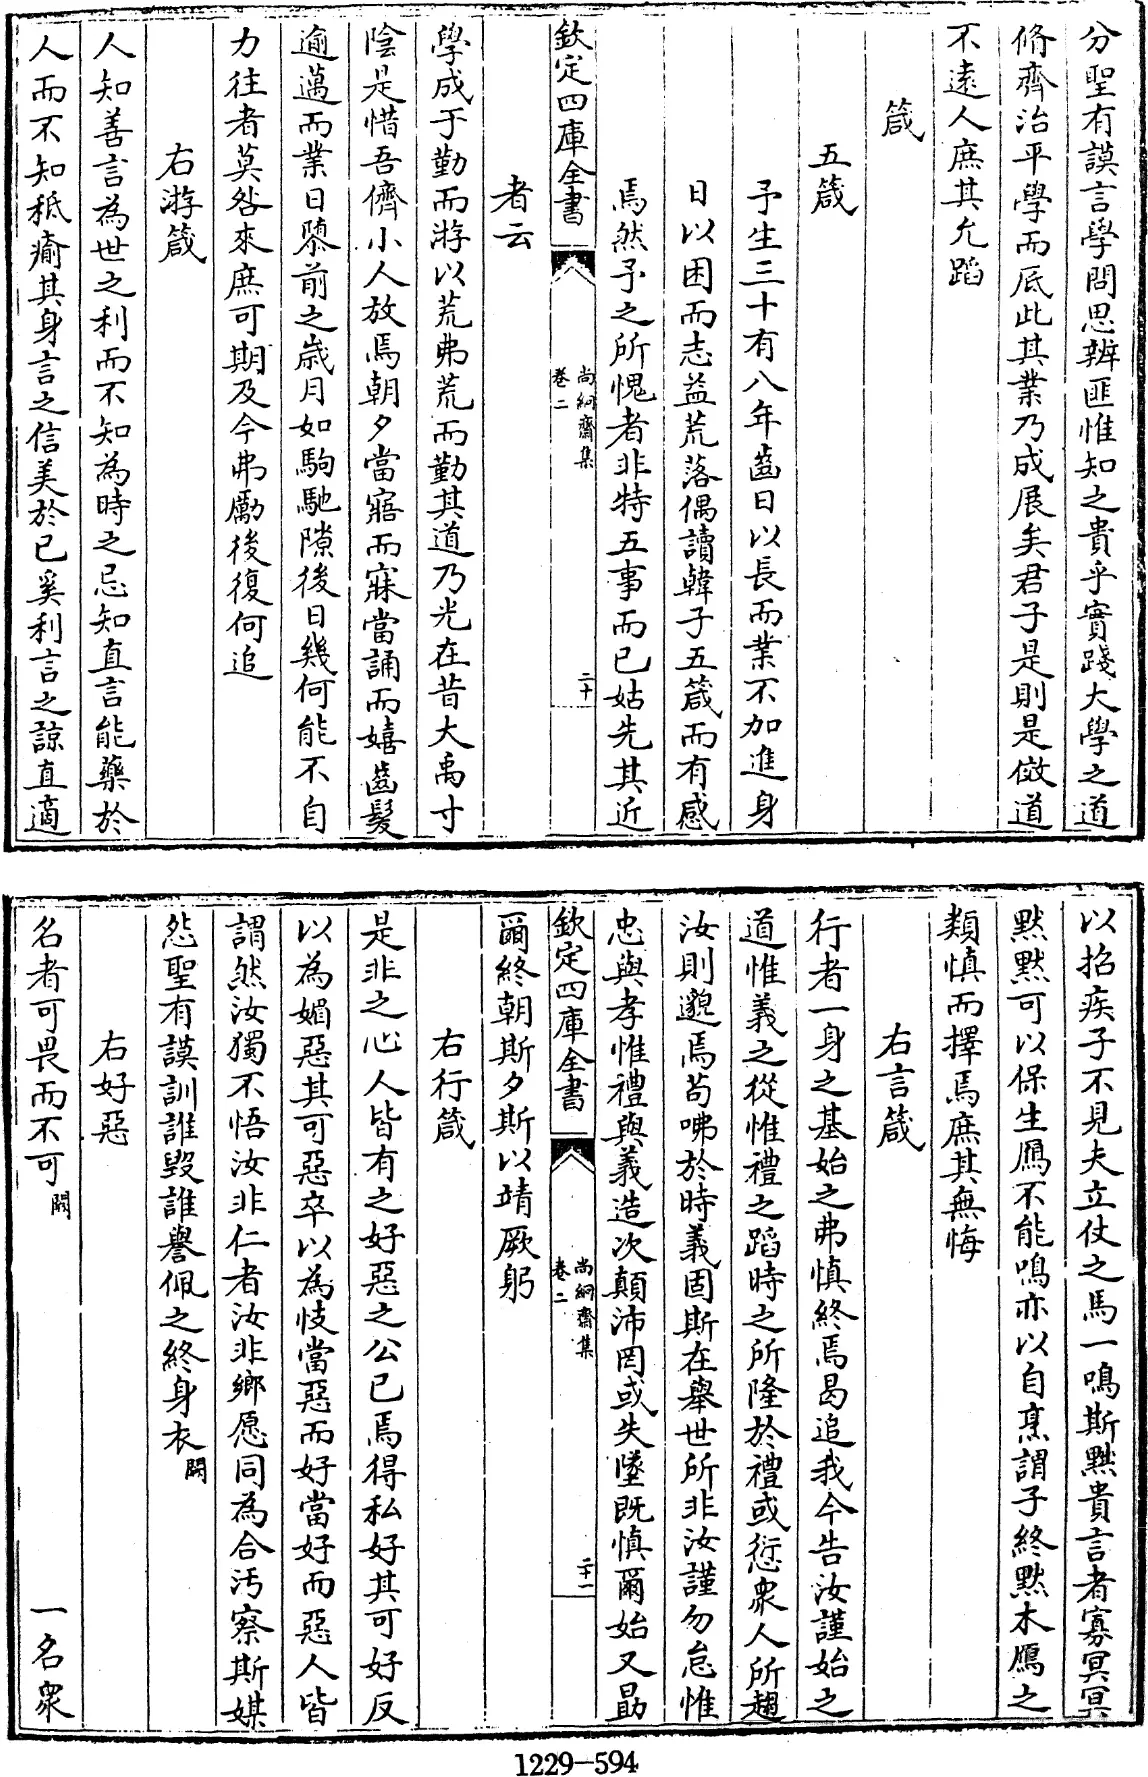 分聖有謨言學問思辨匪惟知之貴乎實踐大學之道
脩齊治平學而底此其業乃成展矣君子是則是傚道
不遠人庶其允蹈
箴
五箴
予生三十有八年齒日以長而業不加進身
日以困而志益荒落偶讀韓子五箴而有感
焉然予之所愧者非特五事而已姑先其近
欽定四庫全書
尚絅齋集
卷二
二十
者云
學成于勤而游以荒弗荒而勤其道乃光在昔大禹寸
陰是惜吾儕小人放焉朝夕當寤而寐當誦而嬉齒髮
逾邁而業日隳前之歲月如駒馳隙後日幾何能不自
力往者莫咎來庶可期及今弗勵後復何追
右游箴
人知善言為世之利而不知為時之忌知直言能藥於
人而不知秪瘉其身言之信美於已奚利言之諒直適
以招疾子不見夫立仗之馬一鳴斯黙貴言者寡冥冥
黙黙可以保生鴈不能鳴亦以自烹謂子終黙木鴈之
類慎而擇焉庶其無悔
右言箴
行者一身之基始之弗慎終焉曷追我今告汝謹始之
道惟義之從惟禮之蹈時之所隆於禮或愆衆人所趨
汝則邈焉苟咈於時義固斯在舉世所非汝謹勿怠惟
忠與孝惟禮與義造次顛沛罔或失墜既慎爾始又勗
欽定四庫全書
尚絅齋集
卷二
二十一
爾終朝斯夕斯以靖厥躬
右行箴
是非之心人皆有之好惡之公已焉得私好其可好反
以為媚惡其可惡卒以為忮當惡而好當好而惡人皆
謂然汝獨不悟汝非仁者汝非鄉愿同為合汚察斯媒
怨聖有謨訓誰毀誰譽佩之終身衣闕
右好惡
名者可畏而不可闕 一名衆
1229—594